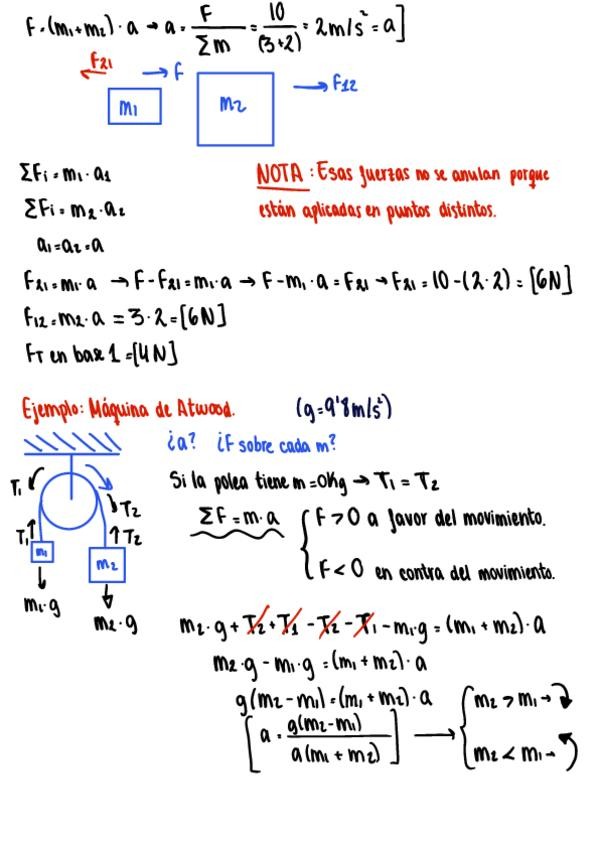 F=(m₁+m₂)·a → a = F/Σm = 10/(3+2) = 2m/s² = a]
F₂₁ → F → F₁₂
m₁ m₂
ΣFi=m₁·a₁
NOTA: Esas fuerzas no se anulan porque
ΣFi=m₂·a₂
están aplicadas en puntos distintos.
a₁=a₂=a
F₂₁=m₁·a → F-F₂₁=m₁·a → F-m₁·a=F₂₁ → F₂₁=10-(2·2)=[6N]
F₁₂=m₂·a = 3·2=[6N]
FT en base 1=[4N]
Ejemplo: Máquina de Atwood. (g=9'8m/s²)
¿a? ¿F sobre cada m?
Si la polea tiene m=0Kg → T₁=T₂
T₁ T₂
T₁ T₂
m₁ m₂
m₁·g m₂·g
ΣF=m·a { F>0 a favor del movimiento.
F<0 en contra del movimiento.
m₂·g+T₂+T₁-T₂-T₁-m₁·g=(m₁+m₂)·a
m₂·g-m₁·g=(m₁+m₂)·a
g(m₂-m₁)=(m₁+m₂)·a
[a = g(m₂-m₁)/a(m₁+m₂)] → { m₂>m₁→
m₂<m₁→